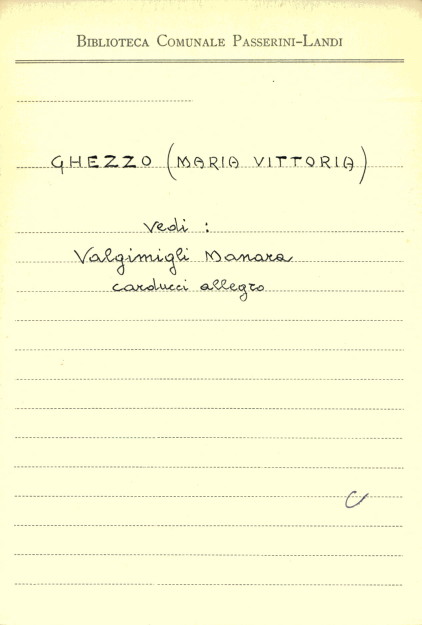 BIBLIOTECA COMUNALE PASSERINI-LANDI
GHEZZO (MARIA VITTORIA)
Vedi :
Valgimigli Manara
Carducci allegro
C